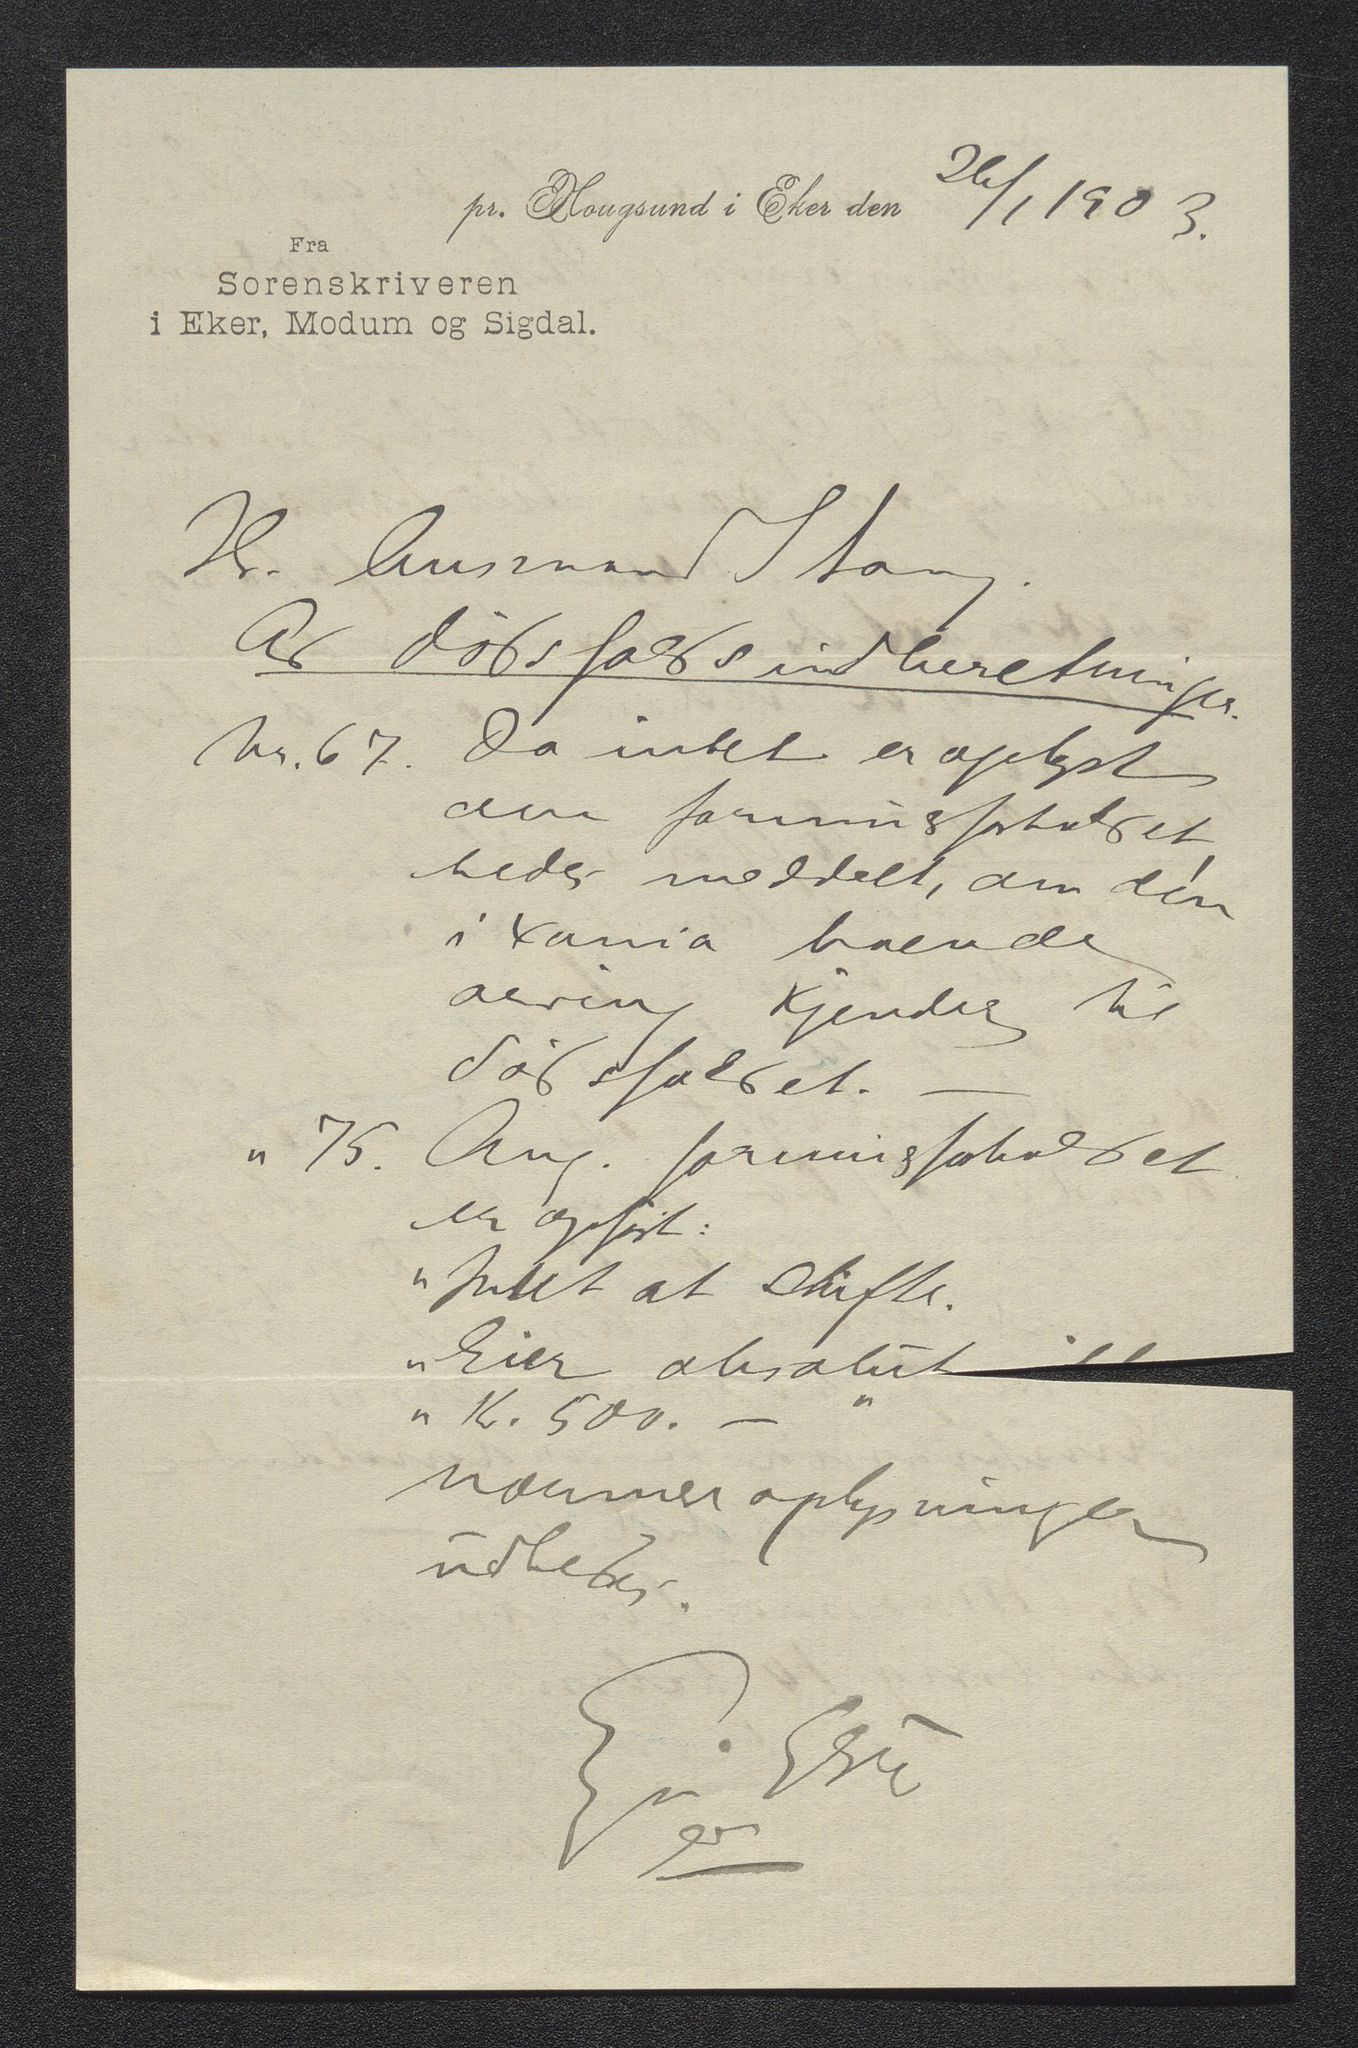 pr. Hougsund i Eker den 26/1 1903.
Fra
Sorenskriveren
i Eker, Modum og Sigdal.
Hr. Lensmand Stang.
Ad dødsfaldsindberetninger.
Nr. 67. Da intet er oplyst
om formuesforholdet,
bedes meddelt, om den
i Xania boende
arving kjender til
dødsfaldet. —
" 75. Ang. formuesforholdet
er opført:
" Intet at skifte.
" Eier absolut
" Kr. 500. — "
Nærmere oplysninger
udbedes.